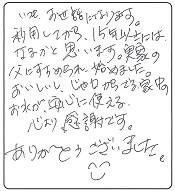 いつも、お世話になります。
利用してから、15年以上には
なるかと思います。実家の
父にすすめられ、始めました。
おいしいし、じゃ口からでる家中の
お水が安心に使える、
心より感謝です。
ありがとうございました。